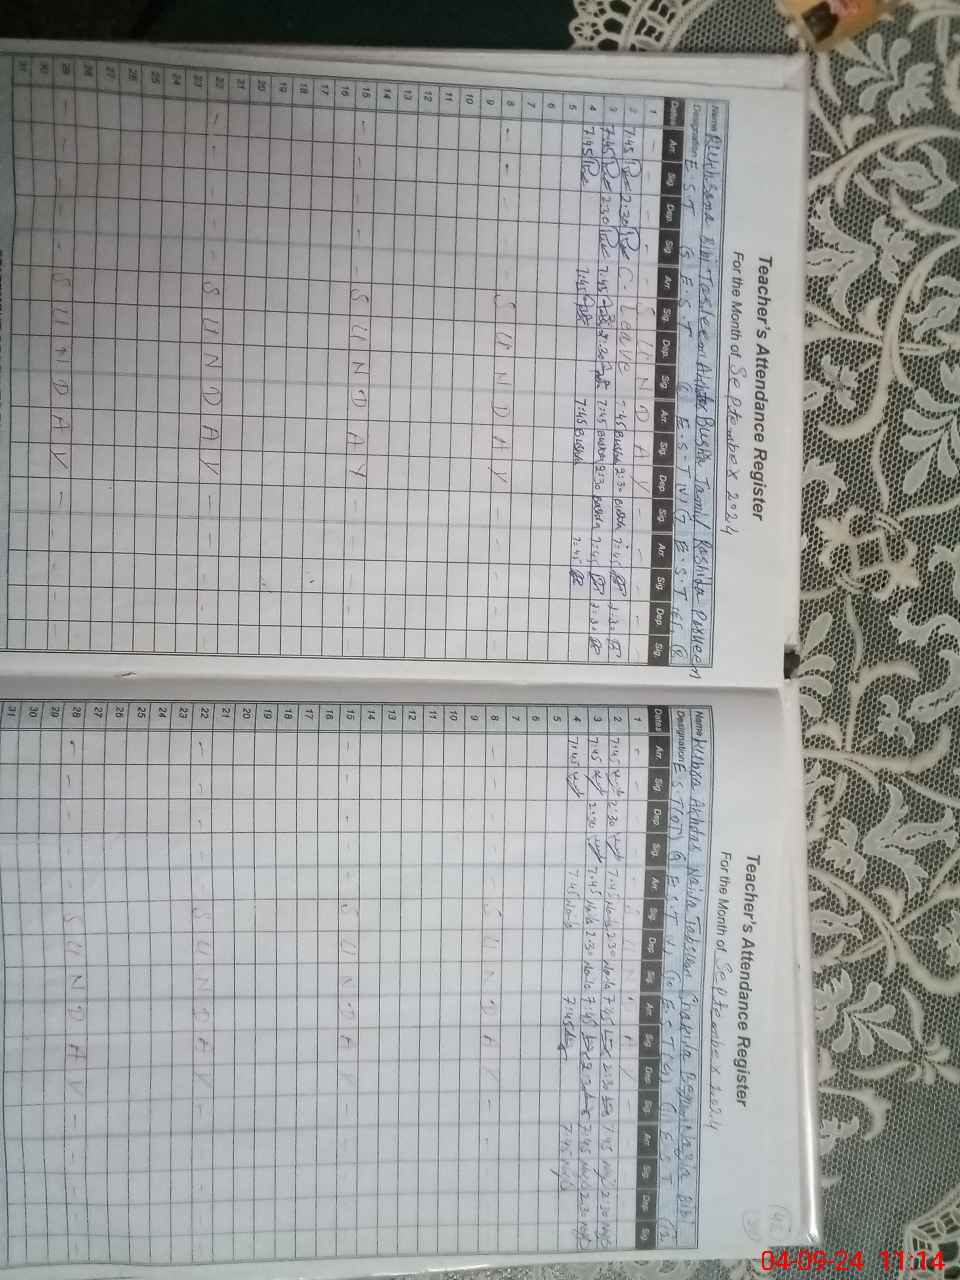 Teacher's Attendance Register
For the Month of September 2024
Name Rukhsana Bibi Tasleem Akhter Bushra Jamil Rashida Parveen
Designation E.S.T E.S.T E.S.T E.S.T
Dates Arr. Sig. Dep. Sig. Arr. Sig. Dep. Sig. Arr. Sig. Dep. Sig. Arr. Sig. Dep. Sig.
1 SUNDAY
2 7:45 2:30 C-Leave 7:45 Bushra 2:30 Bushra 7:45 2:30
3 7:45 2:30 7:45 2:30 7:45 Bushra 2:30 Bushra 7:45 2:30
4 7:45 7:45 7:45 Bushra 7:45
5
6
7
8 SUNDAY
9
10
11
12
13
14
15 SUNDAY
16
17
18
19
20
21
22 SUNDAY
23
24
25
26
27
28
29 SUNDAY
30
31
Teacher's Attendance Register
For the Month of September 2024
Name Akhtar Naila Shakila Begum Bibi
Designation E.S.T E.S.T E.S.T E.S.T
Dates Arr. Sig. Dep. Sig. Arr. Sig. Dep. Sig. Arr. Sig. Dep. Sig. Arr. Sig. Dep. Sig.
1 SUNDAY
2 7:45 2:30 7:45 Naila 2:30 Naila 7:45 2:30 7:45 2:30
3 7:45 2:30 7:45 Naila 2:30 Naila 7:45 2:30 7:45 2:30
4 7:45 7:45 Naila 7:45 7:45
5
6
7
8 SUNDAY
9
10
11
12
13
14
15 SUNDAY
16
17
18
19
20
21
22 SUNDAY
23
24
25
26
27
28 SUNDAY
29
30
31
04-09-24 11:14